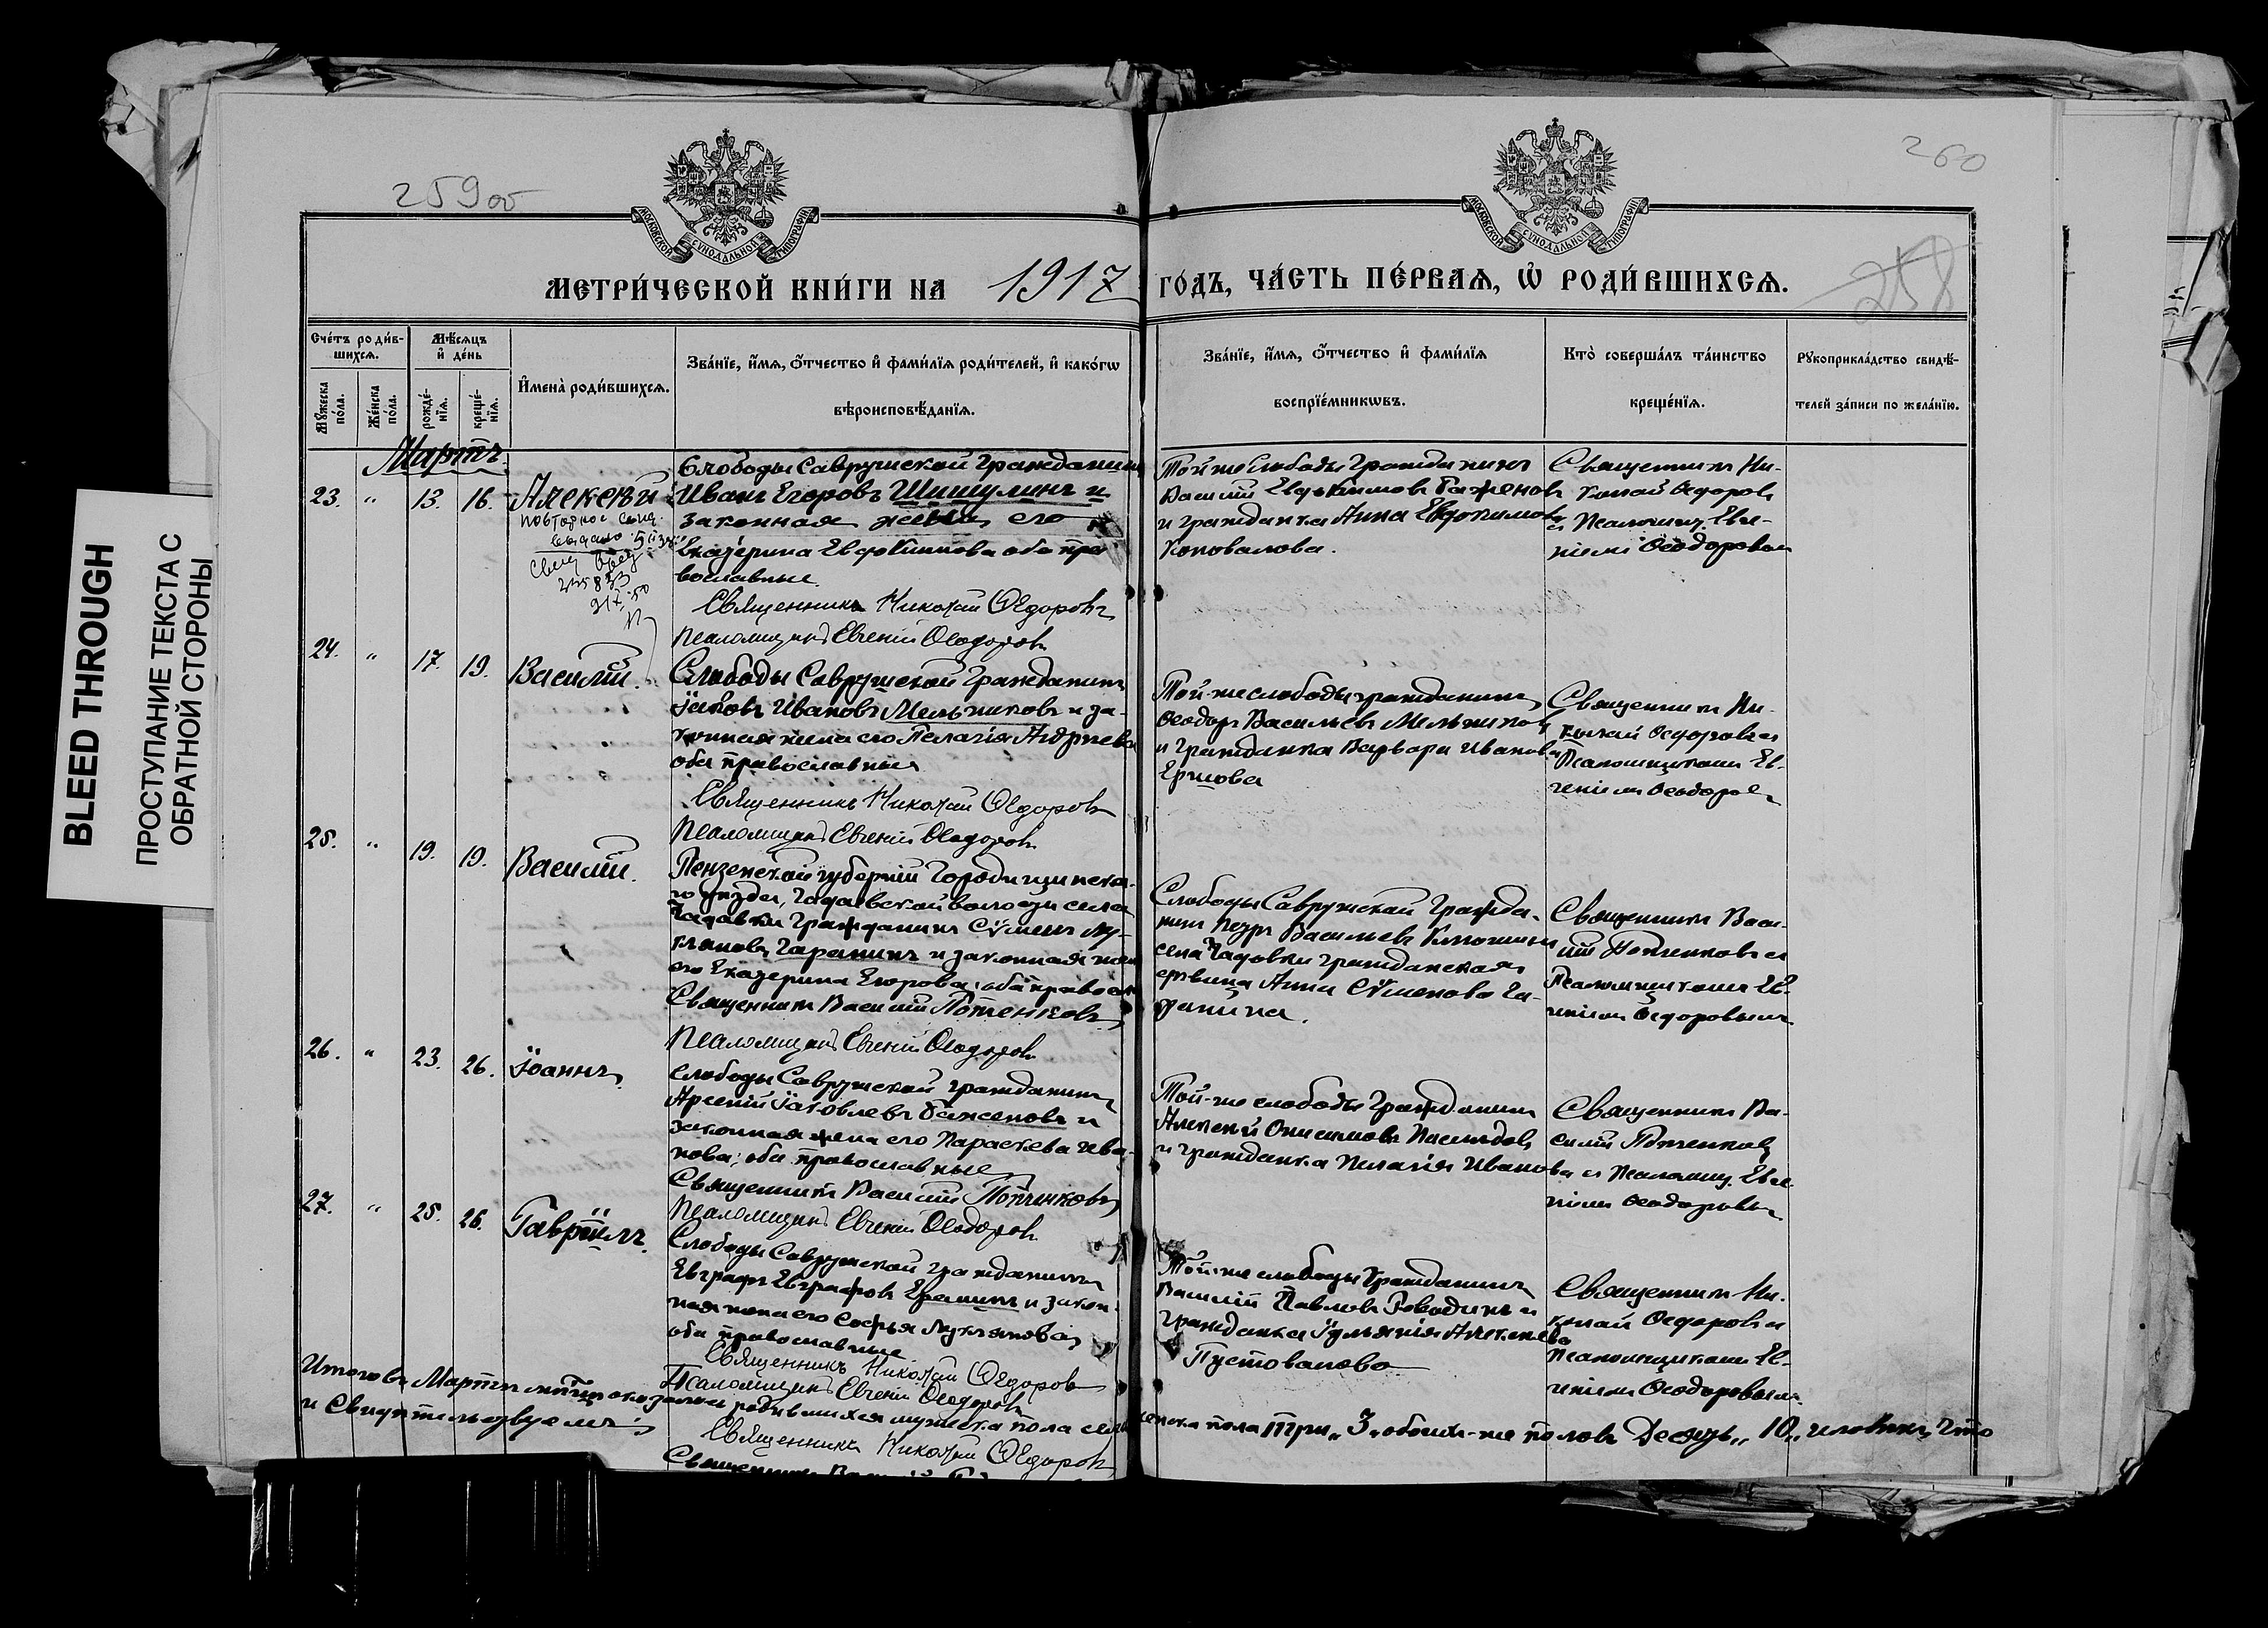 BLEED THROUGH
ПРОСТУПАНИЕ ТЕКСТА С
ОБРАТНОЙ СТОРОНЫ
259об
260
258
МОСКОВСКОЙ СѴНОДАЛЬНОЙ ТИПОГРАФІИ
МОСКОВСКОЙ СѴНОДАЛЬНОЙ ТИПОГРАФІИ
МЕТРИ́ЧЕСКОЙ КНИ́ГИ НА 1917 ГО́ДЪ, ЧА́СТЬ ПЕ́РВАѦ, Ѡ РОДИ́ВШИХСѦ.
Сче́тъ роди́вшихсѧ.
Мꙋ́жеска по́ла.
Же́нска по́ла.
Мѣ́сѧцъ и҆ де́нь
рожде́нїѧ.
креще́нїѧ.
И҆мена̀ роди́вшихсѧ.
Зва́нїе, и҆́мѧ, ѻ҆́тчество и҆ фами́лїѧ роди́телей, и҆ како́гѡ
вѣроисповѣ́данїѧ.
Зва́нїе, и҆́мѧ, ѻ҆́тчество и҆ фами́лїѧ
воспрїе́мникѡвъ.
Кто̀ соверша́лъ та́инство
креще́нїѧ.
Рꙋкоприкла́дство свидѣ́-
телей за́писи по жела́нїю.
Мартъ
23. " 13. 16. Алексѣй
Слободы Саврушской гражданинъ
Иванъ Егоровъ Шишулинъ и
законная жена его
Екатерина Евдокимова оба пра
вославные
Священникъ Николай Ѳедоровъ
Псаломщикъ Евгеній Ѳеодоровъ
Той же слободы гражданинъ
Василій Евдокимовъ Баженовъ
и гражданка Анна Евдокимова
Коновалова.
Священникъ Ни-
колай Ѳедоровъ
съ Псаломщ. Евге-
ніемъ Ѳеодоровым
24. " 17. 19. Василій.
Слободы Саврушской гражданинъ
Іаковъ Ивановъ Мельниковъ и за-
конная жена его Пелагія Андреева
оба православные
Священникъ Николай Ѳедоровъ
Псаломщикъ Евгеній Ѳеодоровъ
Той-же слободы гражданинъ
Ѳеодоръ Васильевъ Мельников
и гражданка Варвара Иванова
Ершова
Священникъ Ни-
колай Ѳедоровъ съ
Псаломщикомъ Ев-
геніемъ Ѳеодоров
25. " 19. 19. Василій.
Пензенской губерніи Городищенска-
го уѣзда, Чадаевской волости села
Чадаевки гражданинъ Сѵмеонъ Лу-
кьяновъ Гаранинъ и законная жена
его Екатерина Егорова; оба правосл
Священникъ Василій Потченковъ
Псаломщикъ Евгеній Ѳеодоровъ
Слободы Саврушской гражда-
нинъ Петръ Васильевъ
села Чадаевки гражданская
дѣвица Анна Сѵмеонова Га-
ранина.
Священникъ Васи-
лій Потченковъ съ
Псаломщикомъ Ев-
геніемъ Ѳедоровымъ
26. " 23. 26. Іоаннъ
Слободы Саврушской гражданинъ
Арсеній Іаковлевъ Баженовъ и
законная жена его Параскева Ива-
нова; оба православные
Священникъ Василій Потченковъ
Псаломщикъ Евгеній Ѳеодоровъ
Той-же слободы гражданинъ
Алексѣй Онисимовъ
и гражданка Пелагія Иванова
Священникъ Ва-
силій Потченковъ
съ Псаломщ. Евге-
ніемъ Ѳеодоровым
27. " 25. 26. Гавріилъ.
Слободы Саврушской гражданинъ
Евграфъ Евграфовъ Ереминъ и закон-
ная жена его Софья Лукьянова
оба православные
Священникъ Николай Ѳедоровъ
Псаломщикъ Евгеній Ѳеодоровъ
Той-же слободы гражданинъ
Василій Павловъ и
гражданка Іуліанія Алексѣева
Пустовалова
Священникъ Ни-
колай Ѳедоровъ и
Псаломщикомъ Ев-
геніемъ Ѳеодоровым
Итого въ Мартѣ мѣсяцѣ оказалось родившихся мужеска пола семь женска пола три „3„ обоихъ-же половъ Десять „10„ человѣкъ, что
и свидѣтельствуемъ:
Священникъ Николай Ѳедоровъ
Священникъ Василій